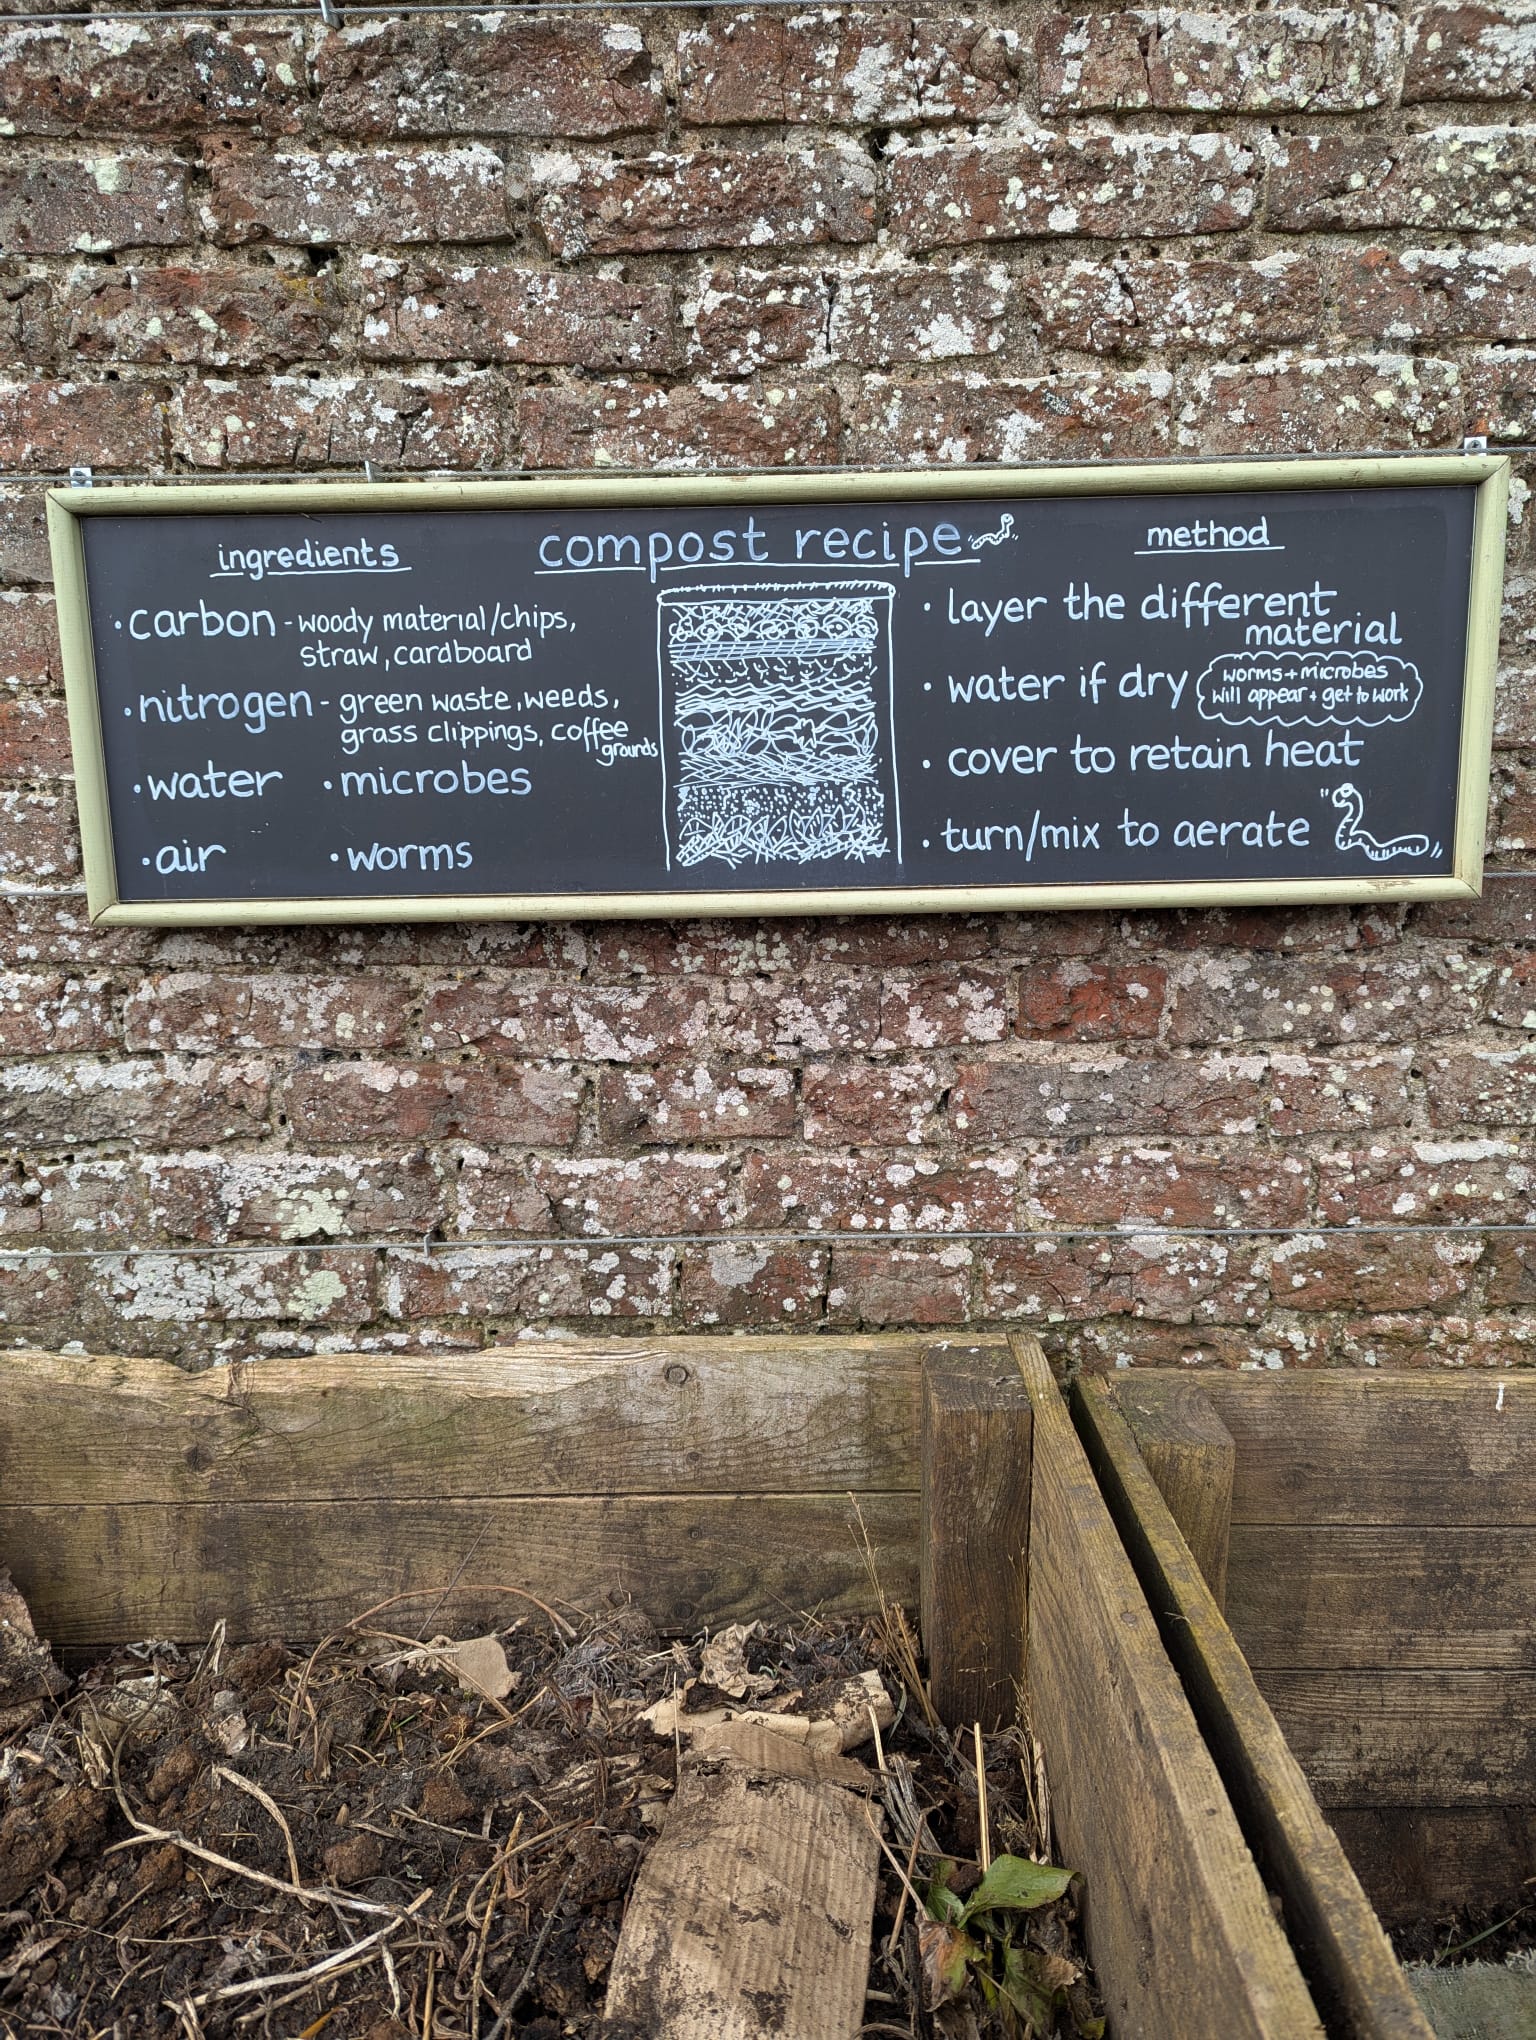 compost recipe
ingredients
• carbon - woody material/chips,
straw, cardboard
• nitrogen - green waste, weeds,
grass clippings, coffee
grounds
• water • microbes
• air • worms
method
• layer the different
material
• water if dry
worms + microbes
will appear + get to work
• cover to retain heat
• turn/mix to aerate